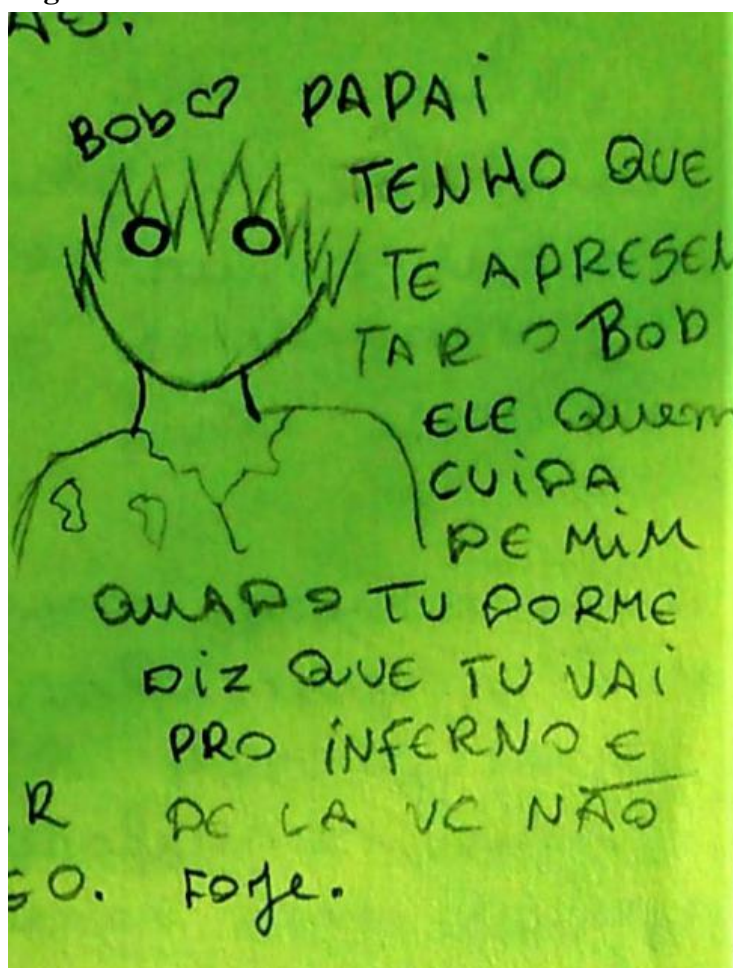 ÃO.
Bob♡ PAPAi
TENHO QUE
TE APRESEN
TAR O BOB
ELE QUEM
CUiDA
DE MiM
QUADO TU DORME
DiZ QUE TU VAi
PRO iNFERNO E
R DE LA VC NÃO
GO. FOJE.